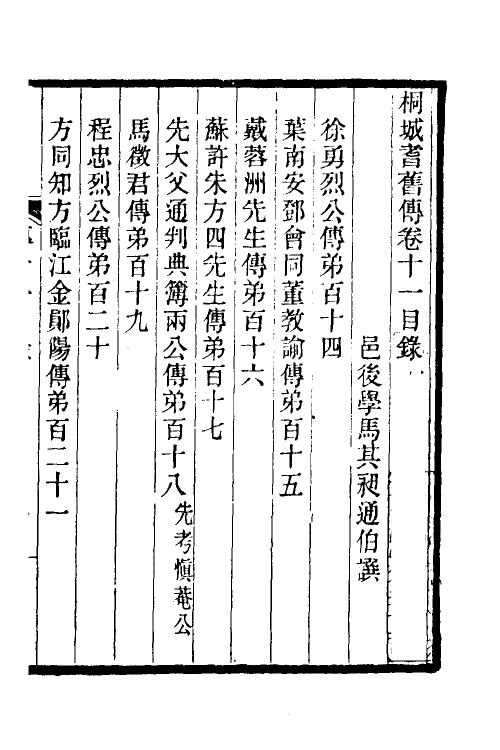 桐城耆舊傳卷十一目錄
邑後學馬其昶通伯譔
徐勇烈公傳弟百十四
葉南安鄧會同董教諭傳弟百十五
戴蓉洲先生傳弟百十六
蘇許朱方四先生傳弟百十七
先大父通判典簿兩公傳弟百十八 先考愼菴公
馬徵君傳弟百十九
程忠烈公傳弟百二十
方同知方臨江金鄖陽傳弟百二十一